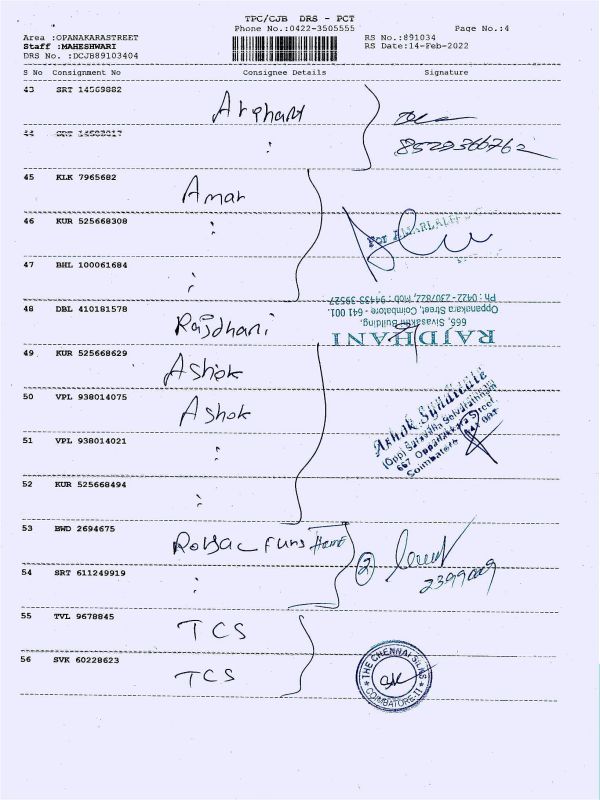 TPC/CJB DRS - PCT
Phone No.:0422-3505555 Page No.:4
Area :OPANAKARASTREET RS No.:891034
Staff :MAHESHWARI RS Date:14-Feb-2022
DRS No. :DCJB89103404
S No Consignment No Consignee Details Signature
43 SRT 14569882
44
8529366762
45 KLK 7965682 Amar
46 KUR 525668308
47 BHL 100061684
48 DBL 410181578 Rajdhani
RAJDHANI
666, Sivasakthi Building,
Oppanakara Street, Coimbatore - 641 001.
Ph : 0422 - 2307822, Mob : 94433 39527
49 KUR 525668629 Ashok
50 VPL 938014075 Ashok
Ashok Syndicate
667 Oppanakkara Street
Coimbatore
51 VPL 938014021
52 KUR 525668494
53 BWD 2694675 Home
2
2399009
54 SRT 611249919
55 TVL 9678845 TCS
56 SVK 60228623 TCS
THE CHENNAI SILKS
COIMBATORE-11